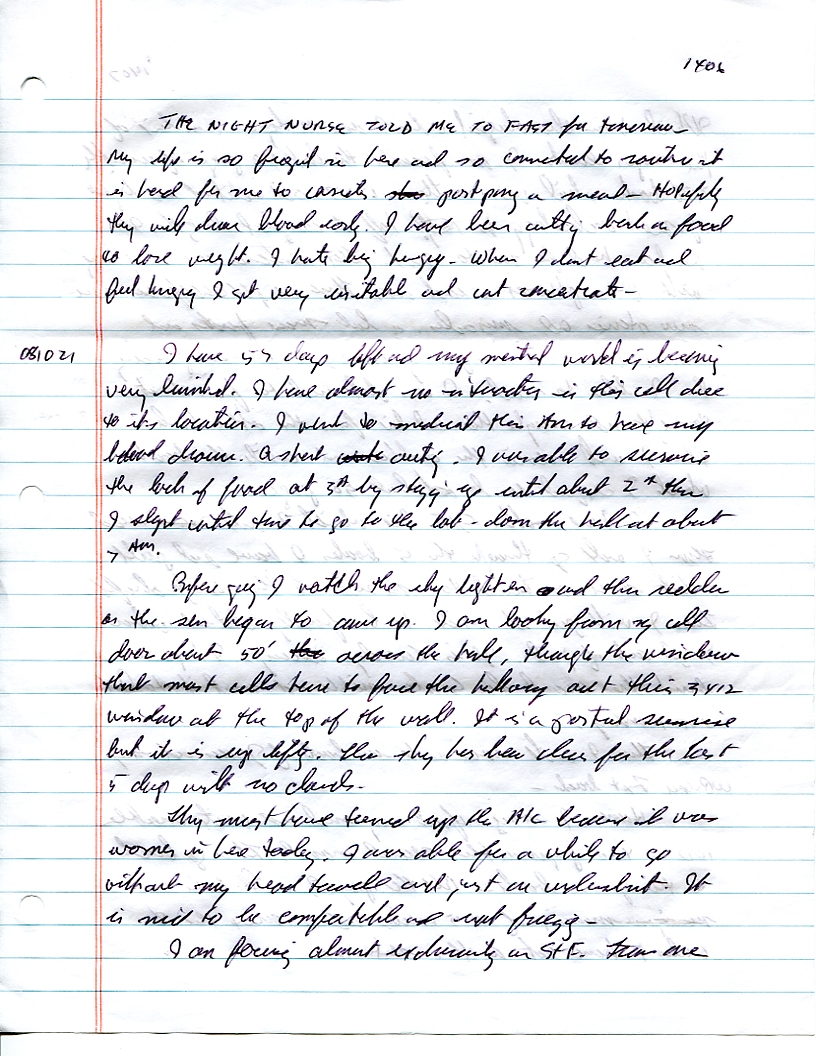 1406
THE NIGHT NURSE TOLD ME TO FAST for tomorrow-
My life is so fragil in here and so connected to routine it
is hard for me to consider postponing a meal- Hopefully
they will draw blood early. I have been cutting back on food
to lose weight. I hate being hungry- When I dont eat and
feel hungry I get very irritable and cant concentrate-
081021
I have 55 days left and my mental world is becoming
very limited. I have almost no interaction in this cell due
to its location. I went to medical this Am to have my
blood drawn. A short outing. I was able to survive
the lack of food at by staying up until about then
I slept until time to go to the lab - down the hall at about
7 Am.
Before going I watch the sky lighten and then redden
as the sun began to come up. I am looking from my cell
door about 50' across the hall, through the window
that most cells have to face the hallway out this 3x12
window at the top of the wall. It is a partial sunrise
but it is up lifting. The sky has been clear for the last
5 days with no clouds-
They must have turned up the A/c because it was
warmer in here today. I was able for a while to go
without my head towell and just an undershirt. It
is nice to be comfortable and not freezing-
I am focusing almost exclusively on S+F. one